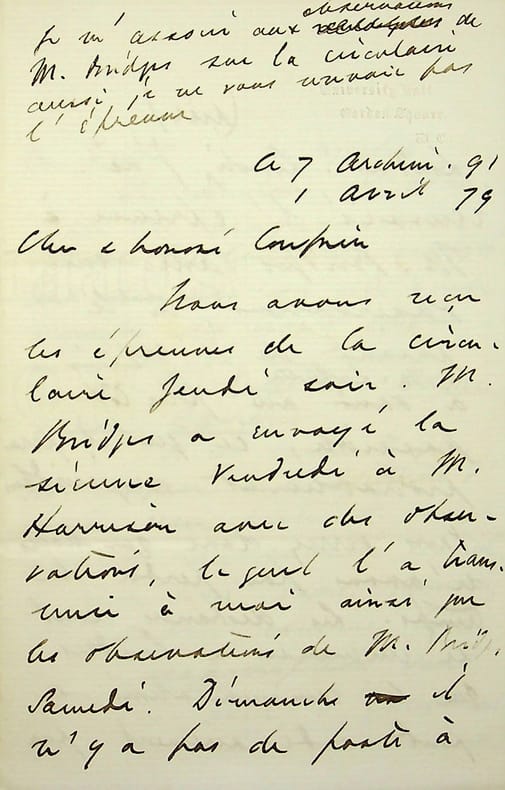 Je m'associe aux observations de
M. Bridges sur la circulaire
aussi je ne vous envoie pas
l'épreuve
le 7 Archim. 91
1 Avril 79
Cher & honoré Confrère
Nous avons reçu
les épreuves de la circu-
laire Jeudi soir. M.
Bridges a envoyé la
sienne Vendredi à M.
Harrison avec des obser-
vations, lequel l'a trans-
mise à moi ainsi que
les observations de M. Bridges,
Samedi. Dimanche il
n'y a pas de poste à